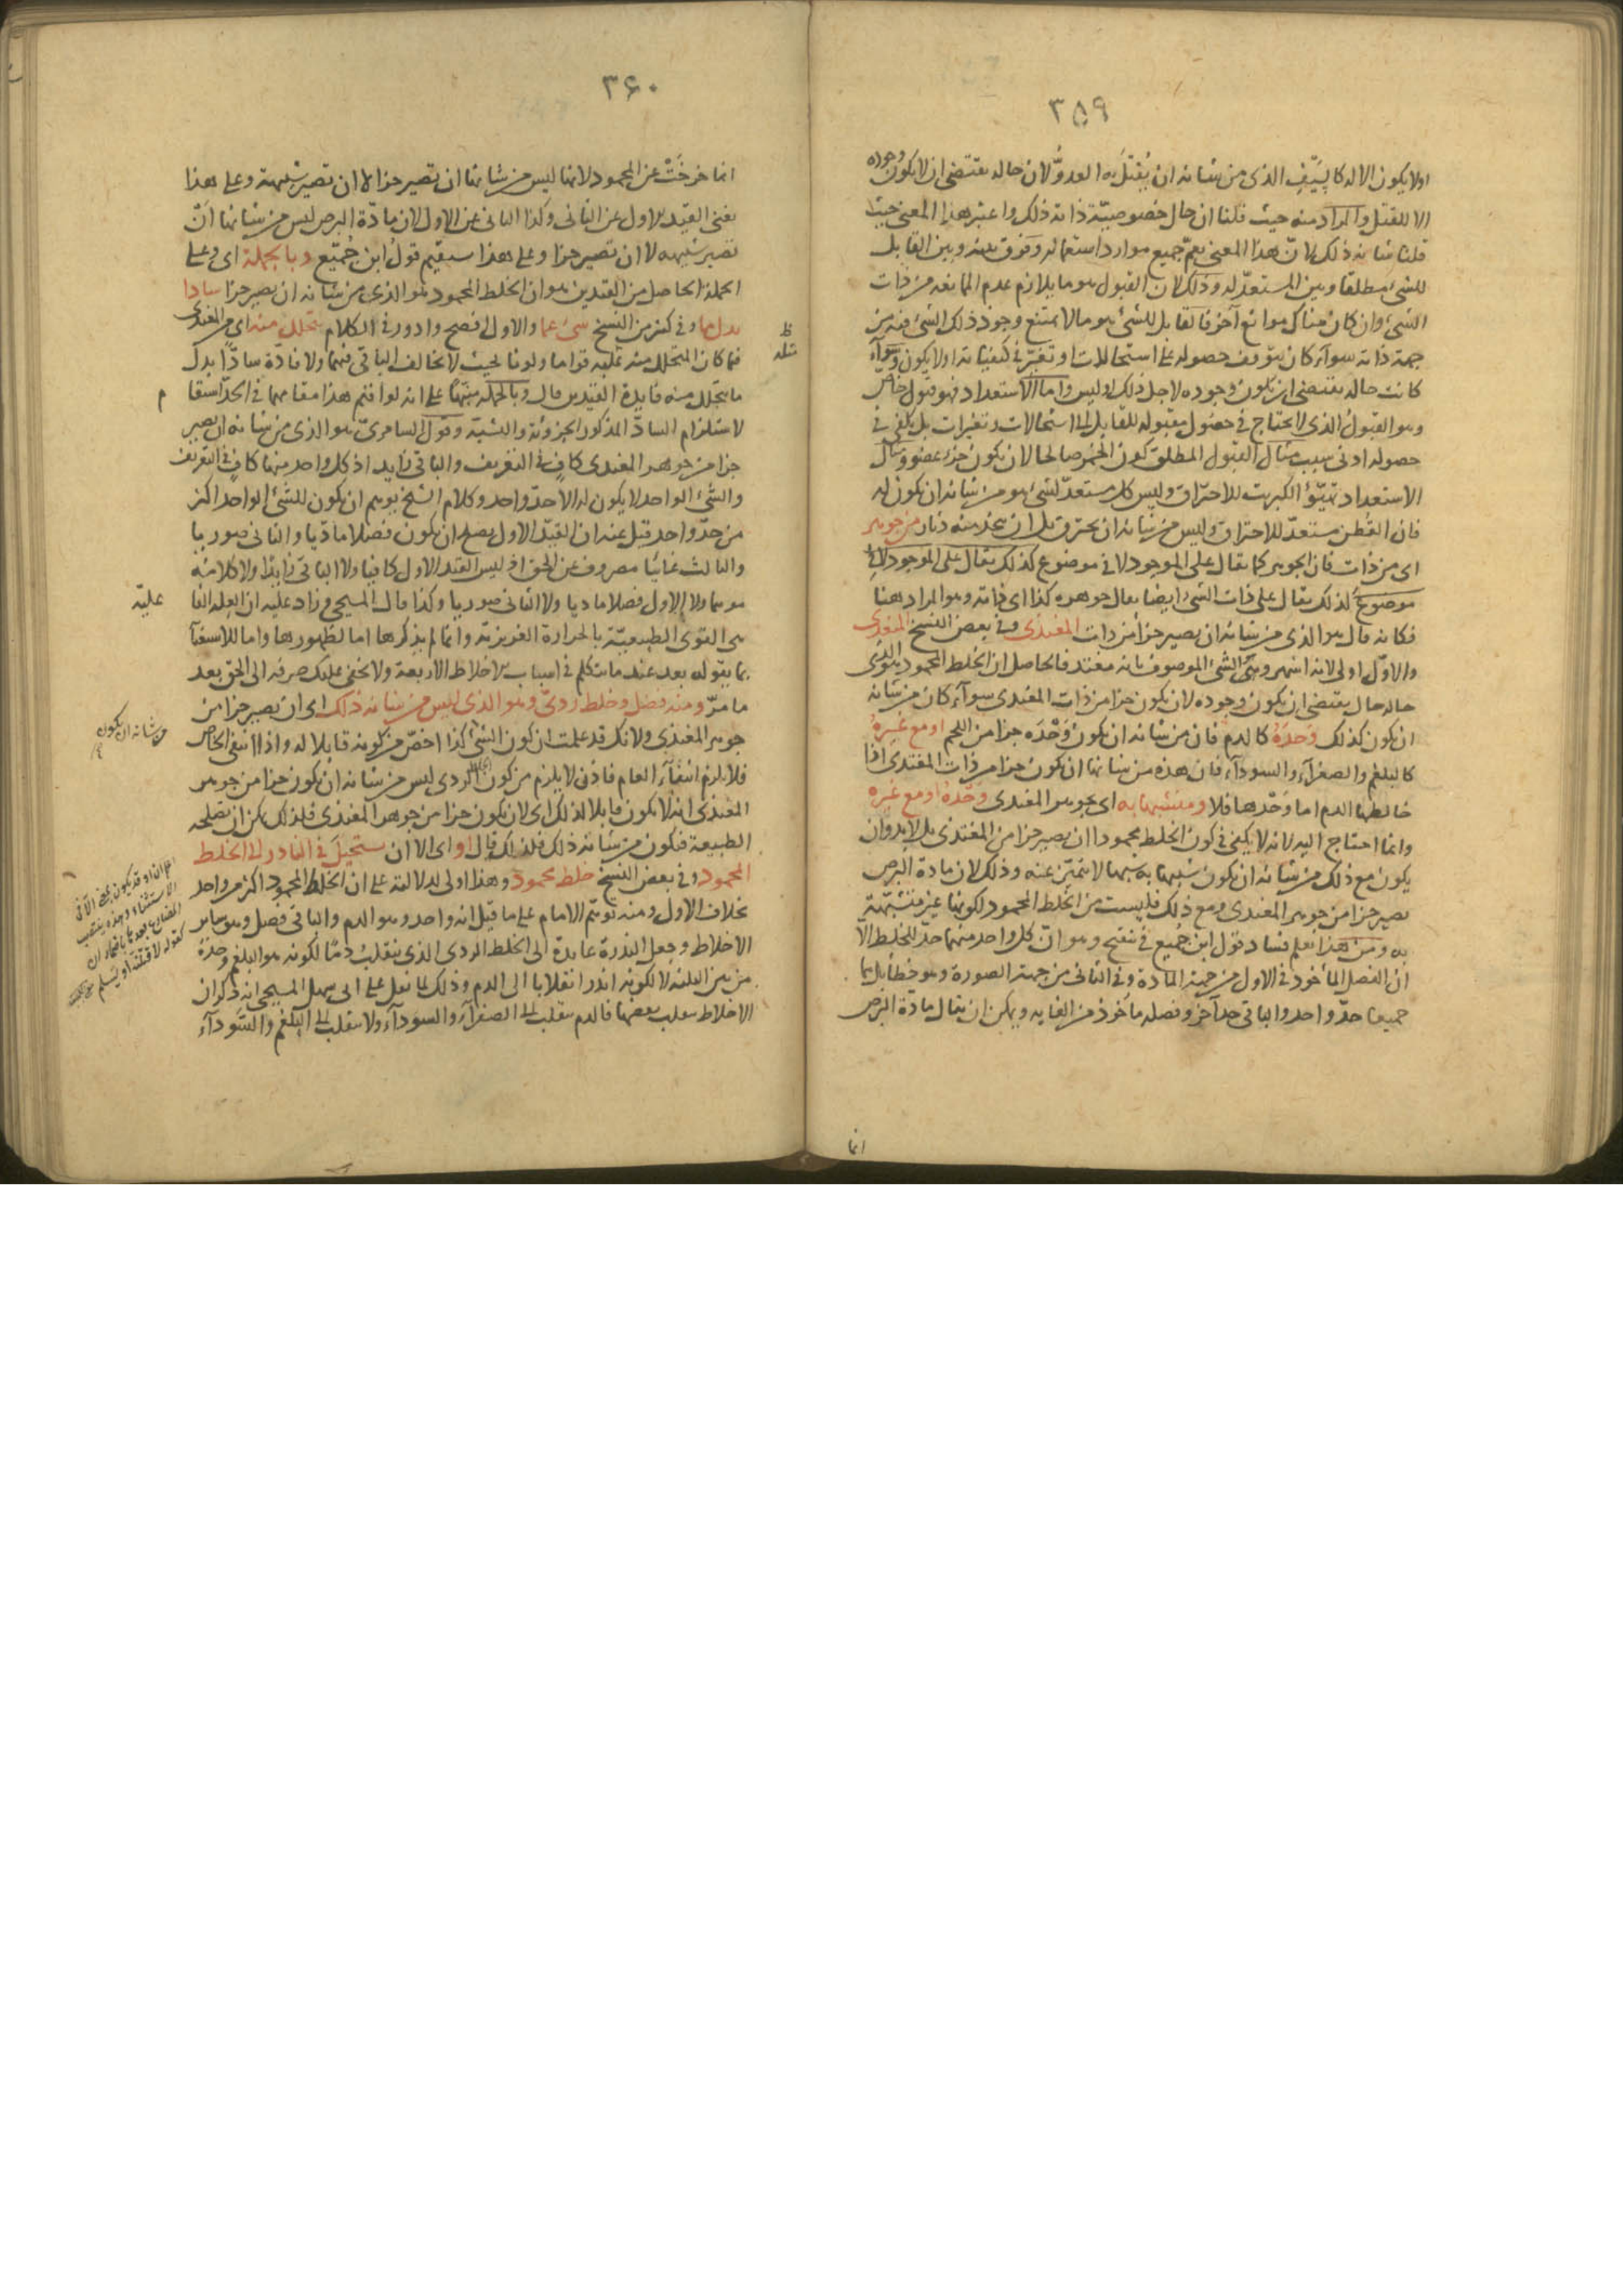 ٣٥٩
اولا يكون الا له كالسَّيْفِ الذى من شانه ان يُقْتَلَ به العدوُّ لان حاله يقتضى ان لا يكون وجوده
الا للقتل والمراد منه حيث قلنا ان حال خصوصيّة ذاته ذلك واعتبر هذا المعنى حيث
قلنا شانه ذلك لانّ هذا المعنى يعمّ جميع موارد استعماله وفرق بينه وبين القابل
للشئ مطلقا وبين المستعدّ له وذلك لان القبول هو ما يلازم عدم الممانعه من ذات
الشئ وان كان هناك موانع آخر فالقابل للشئ هو ما لا يمتنع وجود ذلك الشئ فيه من
جهة ذاته سوآء كان يتوقف حصوله على استحالات او تغيّر فى كيفياته اولا يكون وسوآء
كانت حاله يقتضى ان يكون وجوده لاجل ذلك او ليس واما الاستعداد فهو قبول خاص
وهو القبول الذى لا يحتاج فى حصول مقبوله للقابل الى استحالات وتغيرات بل يكفى فى
حصوله ادنى سبب مثال القبول المطلق كون الخبز صالحا لان يكون جزء عضو ومثال
الاستعداد تهيّؤ الكبريت للاحتراق وليس كل مستعدّ لشئ هو من شانه ان يكون له
فان القطن مستعدّ للاحتراق وليس من شانه ان يحترق بل ان يتخذ منه دثار من جوهر
اى من ذات فان الجوهر كما يقال على الموجود لا فى موضوع كذلك يقال على الموجود لا فى
موضوع كذلك يقال على ذات الشئ ايضا يقال جوهره كذا اى ذاته وهو المراد هنا
فكانه قال هو الذى من شانه ان يصير جزأ من ذات المغتذى وفى بعض النسخ المغذى
والاوّل اولى لانه اشهر وهى الشئ الموصوف بانه مغتذ فالحاصل ان الخلط المحمود هو الذى
حاله حال يقتضى ان يكون وجوده لان يكون جزأ من ذات المغتذى سوآء كان من شانه
ان يكون كذلك وَحدَهُ كالدم فان من شانه ان يكون وَحْدَه جزأ من اللحم او مع غيره
كالبلغم والصفرآء والسودآء فان هذه من شانها ان يكون جزأ من ذات المغتذى اذا
خالطها الدم اما وَحْدها فلا ومتشبها به اى بجوهر المغتذى وحده او مع غيره
وانما احتاج اليه لانه لا يكفى فى كون الخلط محمودا ان يصير جزأ من المغتذى بل لابد وان
يكون مع ذلك من شانه ان يكون شبيها به شبها لا يتميّز عنه وذلك لان مادة البرص
يصير جزأ من جوهر المغتذى ومع ذلك فليست من الخلط المحمود لكونها غير متشبّهة
به ومن هذا يعلم فساد قول ابن جُمَيع فى تنقيح وهو انّ كل واحد منهما حدّ للخلط الا
ان الفصل المأخوذ فى الاول من جهة المادة وفى الثانى من جهة الصورة وهو خطأ بل هما
جميعا حدّ واحد والباقى حدآخر وفصله مأخوذ من الغايه ويمكن ان يقال مادة البرص
انما
٣۶٠
انما خرجَتْ عن المحمود لانها ليس من شانها ان تصير جزأ لا ان تصير شبيهة وعلى هذا
يغنى القيد الاول عن الثانى وكذا الثانى عن الاول لان مادّة البرص ليس من شانها انْ
تصير شبيهه لا ان تصير جزأ وعلى هذا يستقيم قولُ ابن جُمَيّع وبالجملة اى وعلى
الجملة الحاصل من القيدين هو ان الخلط المحمود هو الذى من شانه ان يصير جزأ سادا
بدل ما وفى كثير من النسخ شئ عما والاول افصح وادور فى الكلام يتحلل منه اى من المغتذى
فما كان المتحلل منه عليه قواما ولونا بحيث لا يخالف الباقى فيهما ولا فادّة سادّا بدل
ما يتحلل منه فايدة القيدين قال وبالجمله منبها على انه لو اقتم هذا مقامهما فى الحدّ استقام
لاستلزام السادّ المذكور الجزوية والشبه وقول السامرىّ هو الذى من شانه ان يصير
جزأ من جوهر المغتذى كافٍ فى التعريف والباقى زايد اذ كل واحد منهما كافٍ فى التعريف
والشئ الواحد لا يكون له الا حدّ واحد وكلام الشيخ يوهم ان يكون للشئ الواحد اكثر
من حدّ واحد قيل عنه ان القيد الاول يصلح ان يكون فصلا ماديا والثانى صوريا
والثالث غائيّا مصروف عن الحق اذ ليس القيد الاول كافيا ولا الباقى زايدًا ولا كلامه
موهما ولا الاول فصلا ماديا ولا الثانى صوريا وكذا قال المسيحى وزاد عليه ان العله الفا
علية
هى القوى الطبيعيّة بالحرارة الغريزية وانما لم يذكرها اما لظهورها واما للاستغنآ
بما يقوله بعد عند ما يتكلم فى اسباب الاخلاط الاربعة ولا يخفى عليك صرفه الى الحق بعد
ما مرّ ومنه فضل وخلط ردىّ وهو الذى ليس من شانه ذلك اى ان يصير جزأ من
جوهر المغتذى ولانك قد علمت ان كون الشئ كذا اخصّ من كونه قابلا له واذا انتفى الخاص
من شانه ان يكون
فلا يلزم انتفآء العام فاذن لا يلزم من كون الردى ليس من شانه ان يكون جزأ من جوهر
المغتذى انه لا يكون قابلا لذلك اى لان يكون جزأ من جوهر المغتذى فلذلك يمكن ان يصلحه
الطبيعة فيكون من شانه ذلك فلذلك قال او اى الا ان يستحيل فى النادر الى الخلط
المحمود وفى بعض النسخ خلط محمود وهذا اولى لدلالته على ان الخلط المحمود اكثر من واحد
بخلاف الاول ومنه توهّم الامام على ما قيل انه واحد وهو الدم والباقى فصل وهو ساير
الاخلاط وجعل الندرة عايدة الى الخلط الردى الذى ينقلبُ دمًا لكونه هو البلغم وحدهُ
من بين الثلثه لا لكونه اندر انقلابا الى الدم وذلك لما نقل على ابى سهل المسيحى انه ذكر ان
الاخلاط ينقلب بعضها فالدم ينقلب الى الصفرآء والسودآء ولا ينقلب الى البلغم والسَّودآء